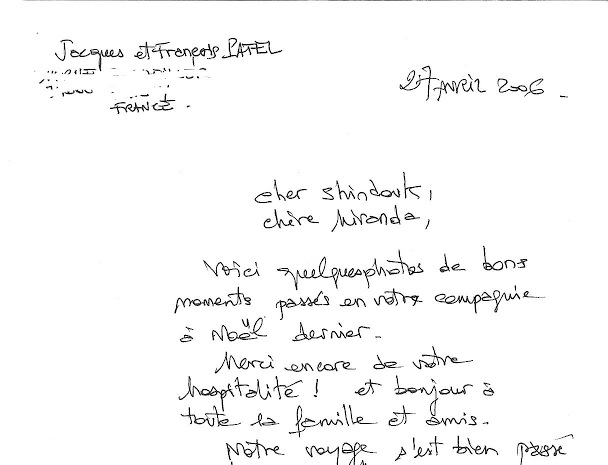 Jacques et François PATEL
FRANCE.
27 AVRIL 2006.
Cher Shindouk,
chère Miranda,
Voici quelques photos de bons
moments passés en votre compagnie
à Noël dernier.
Merci encore de votre
hospitalité ! et bonjour à
toute la famille et amis.
Notre voyage s'est bien passé